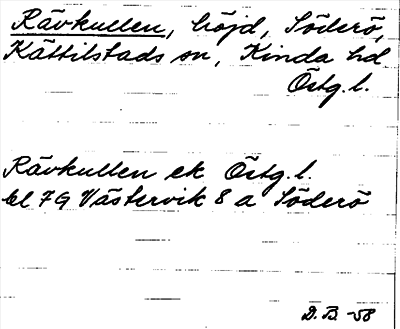 Rävkullen, höjd, Söderö,
Kättilstads sn, Kinda hd
Östg. l.
Rävkullen ek Östg. l.
bl 7G Västervik 8 a Söderö
D. B. -58